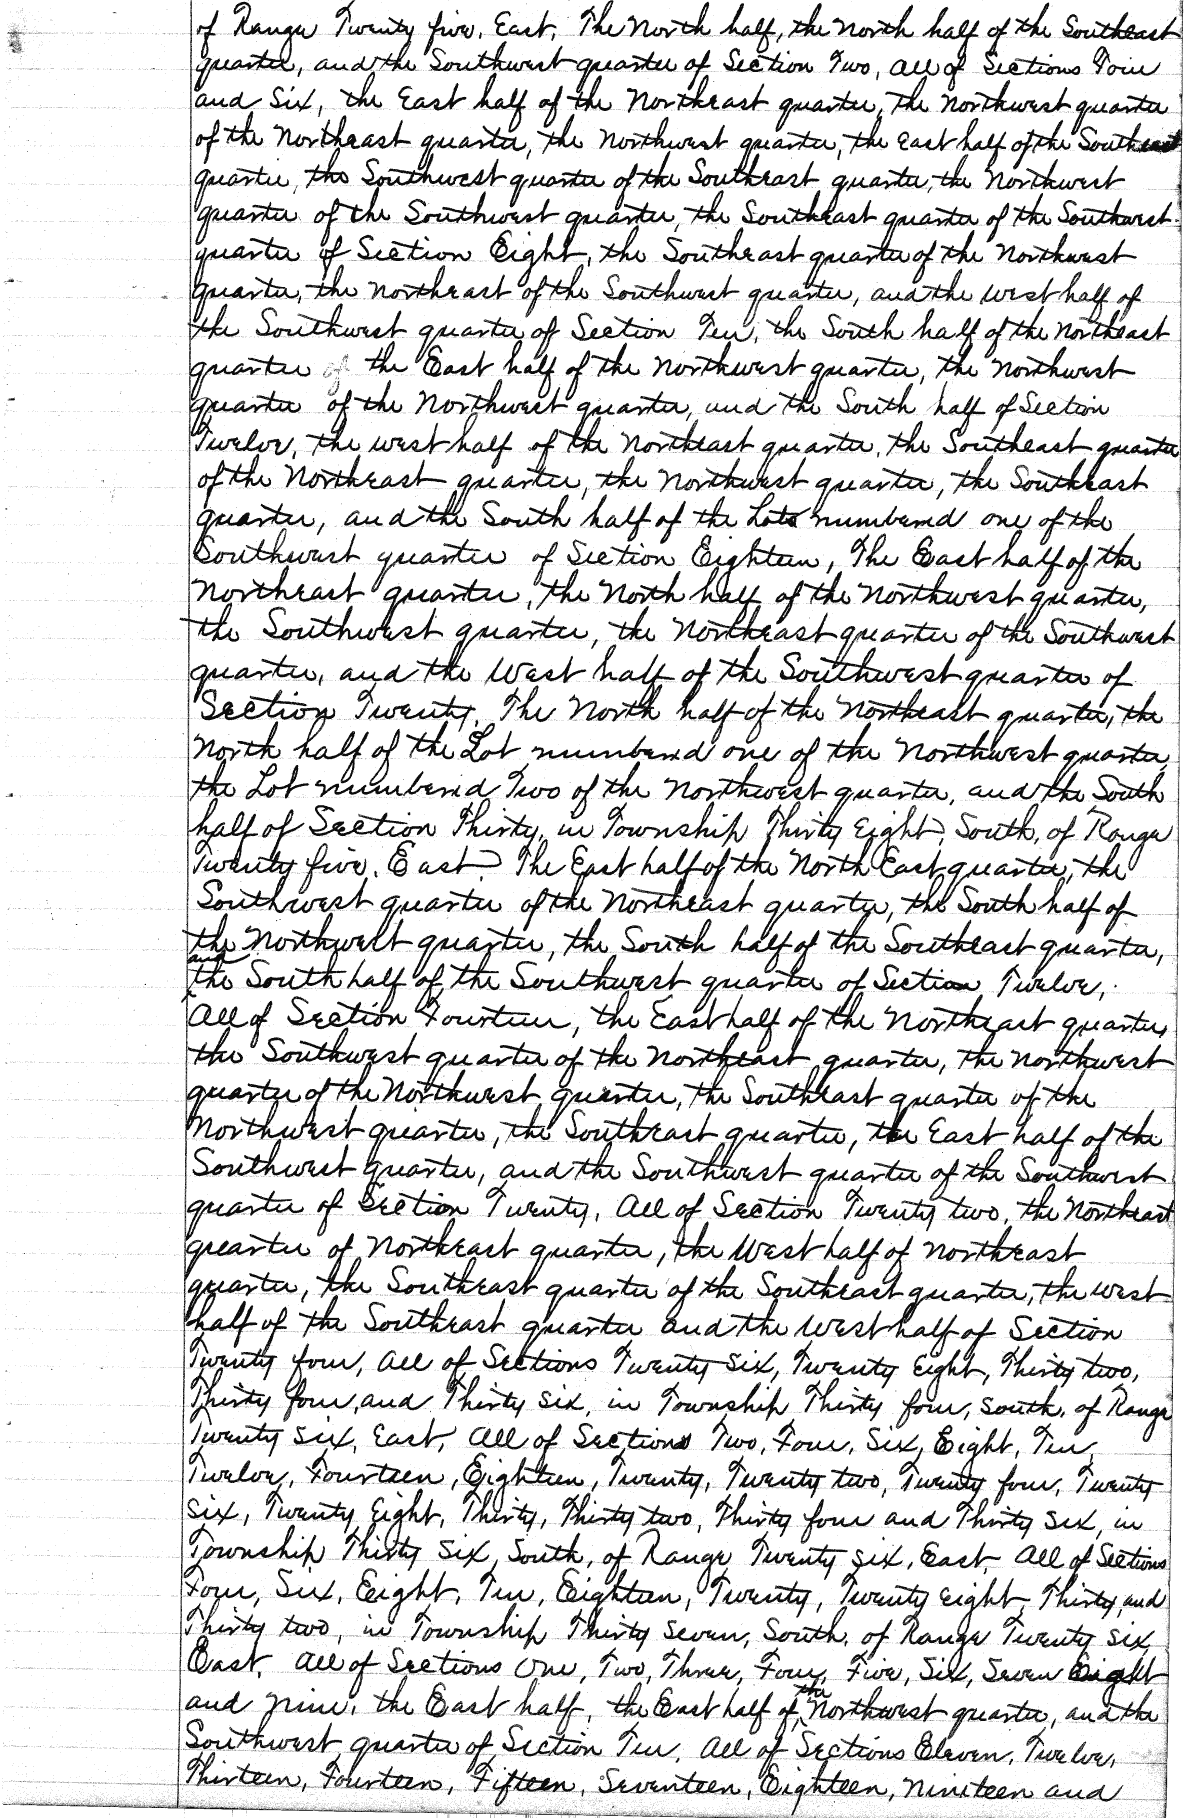 of Range Twenty five, East, The North half, the North half of the Southeast
quarter, and the Southwest quarter of Section Two, all of Sections Four
and Six, the East half of the Northeast quarter, the Northwest quarter
of the Northeast quarter, the Northwest quarter, the East half of the Southeast
quarter, the Southwest quarter of the Southeast quarter, the Northwest
quarter of the Southwest quarter, the Southeast quarter of the Southwest
quarter of Section Eight, the Southeast quarter of the Northwest
quarter, the Northeast of the Southwest quarter, and the West half of
the Southwest quarter of Section Ten, the South half of the Northeast
quarter of the East half of the Northwest quarter, the Northwest
quarter of the Northwest quarter, and the South half of Section
Twelve, the West half of the Northeast quarter, the Southeast quarter
of the Northeast quarter, the Northwest quarter, the Southeast
quarter, and the South half of the Lots numbered one of the
Southwest quarter of Section Eighteen, The East half of the
Northeast quarter, the North half of the Northwest quarter,
the Southwest quarter, the Northeast quarter of the Southwest
quarter, and the West half of the Southwest quarter of
Section Twenty, The North half of the Northeast quarter, the
North half of the Lot numbered one of the Northwest quarter,
the Lot numbered Two of the Northwest quarter, and the South
half of Section Thirty, in Township Thirty Eight, South, of Range
Twenty five, East, The East half of the North East quarter, the
Southwest quarter of the Northeast quarter, the South half of
the Northwest quarter, the South half of the Southeast quarter,
and the South half of the Southwest quarter of Section Twelve,
All of Section Fourteen, the East half of the Northeast quarter,
the Southwest quarter of the Northeast quarter, the Northwest
quarter of the Northwest quarter, the Southeast quarter of the
Northwest quarter, the Southeast quarter, the East half of the
Southwest quarter, and the Southwest quarter of the Southwest
quarter of Section Twenty, All of Section Twenty two, the Northeast
quarter of Northeast quarter, the West half of Northeast
quarter, the Southeast quarter of the Southeast quarter, the West
half of the Southeast quarter and the West half of Section
Twenty four, all of Sections Twenty Six, Twenty Eight, Thirty two,
Thirty four, and Thirty Six, in Township Thirty four, South, of Range
Twenty Six, East, All of Sections Two, Four, Six, Eight, Ten,
Twelve, Fourteen, Eighteen, Twenty, Twenty two, Twenty four, Twenty
Six, Twenty Eight, Thirty, Thirty two, Thirty four and Thirty Six, in
Township Thirty Six, South, of Range Twenty Six, East, All of Sections
Four, Six, Eight, Ten, Eighteen, Twenty, Twenty Eight, Thirty, and
Thirty two, in Township Thirty Seven, South, of Range Twenty Six,
East, All of Sections One, Two, Three, Four, Five, Six, Seven Eight
and Nine, the East half, the East half of the Northwest quarter, and the
Southwest quarter of Section Ten, All of Sections Eleven, Twelve,
Thirteen, Fourteen, Fifteen, Seventeen, Eighteen, Nineteen and